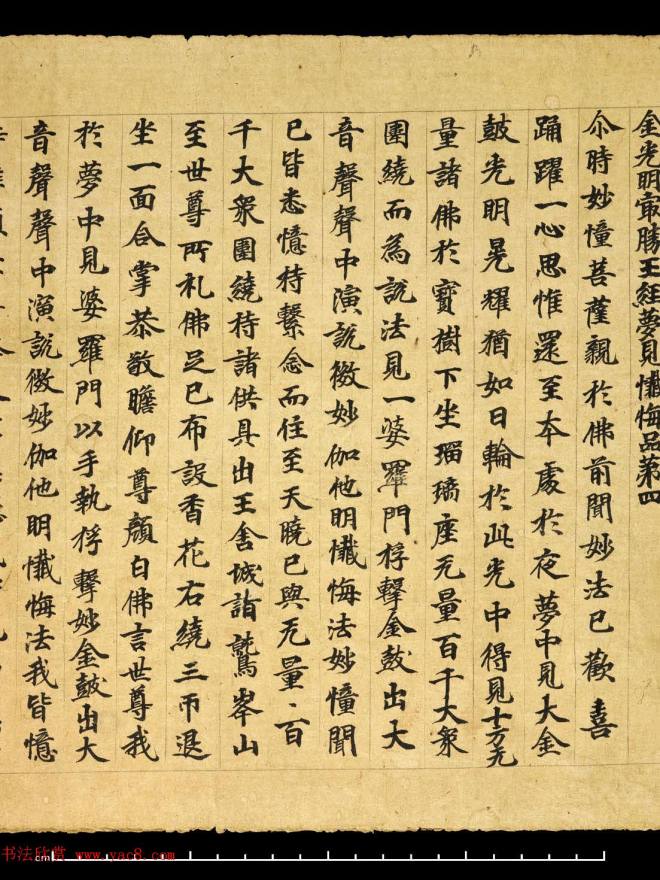 金光明最勝王経夢見懺悔品第四
尒時妙憧菩薩親於佛前聞妙法已歡喜
踊躍一心思惟還至本處於夜夢中見大金
鼓光明晃耀猶如日輪於此光中得見十方无
量諸佛於寶樹下坐瑠璃座无量百千大衆
圍繞而為說法見一婆羅門桴擊金鼓出大
音聲聲中演說微妙伽他明懺悔法妙憧聞
已皆悉憶持繫念而住至天曉已與无量百
千大衆圍繞持諸供具出王舍城詣鷲峯山
至世尊所礼佛足已布設香花右繞三帀退
坐一面合掌恭敬瞻仰尊顏白佛言世尊我
於夢中見婆羅門以手執桴擊妙金鼓出大
音聲聲中演說微妙伽他明懺悔法我皆憶
书法欣赏 www.yac8.com
cm